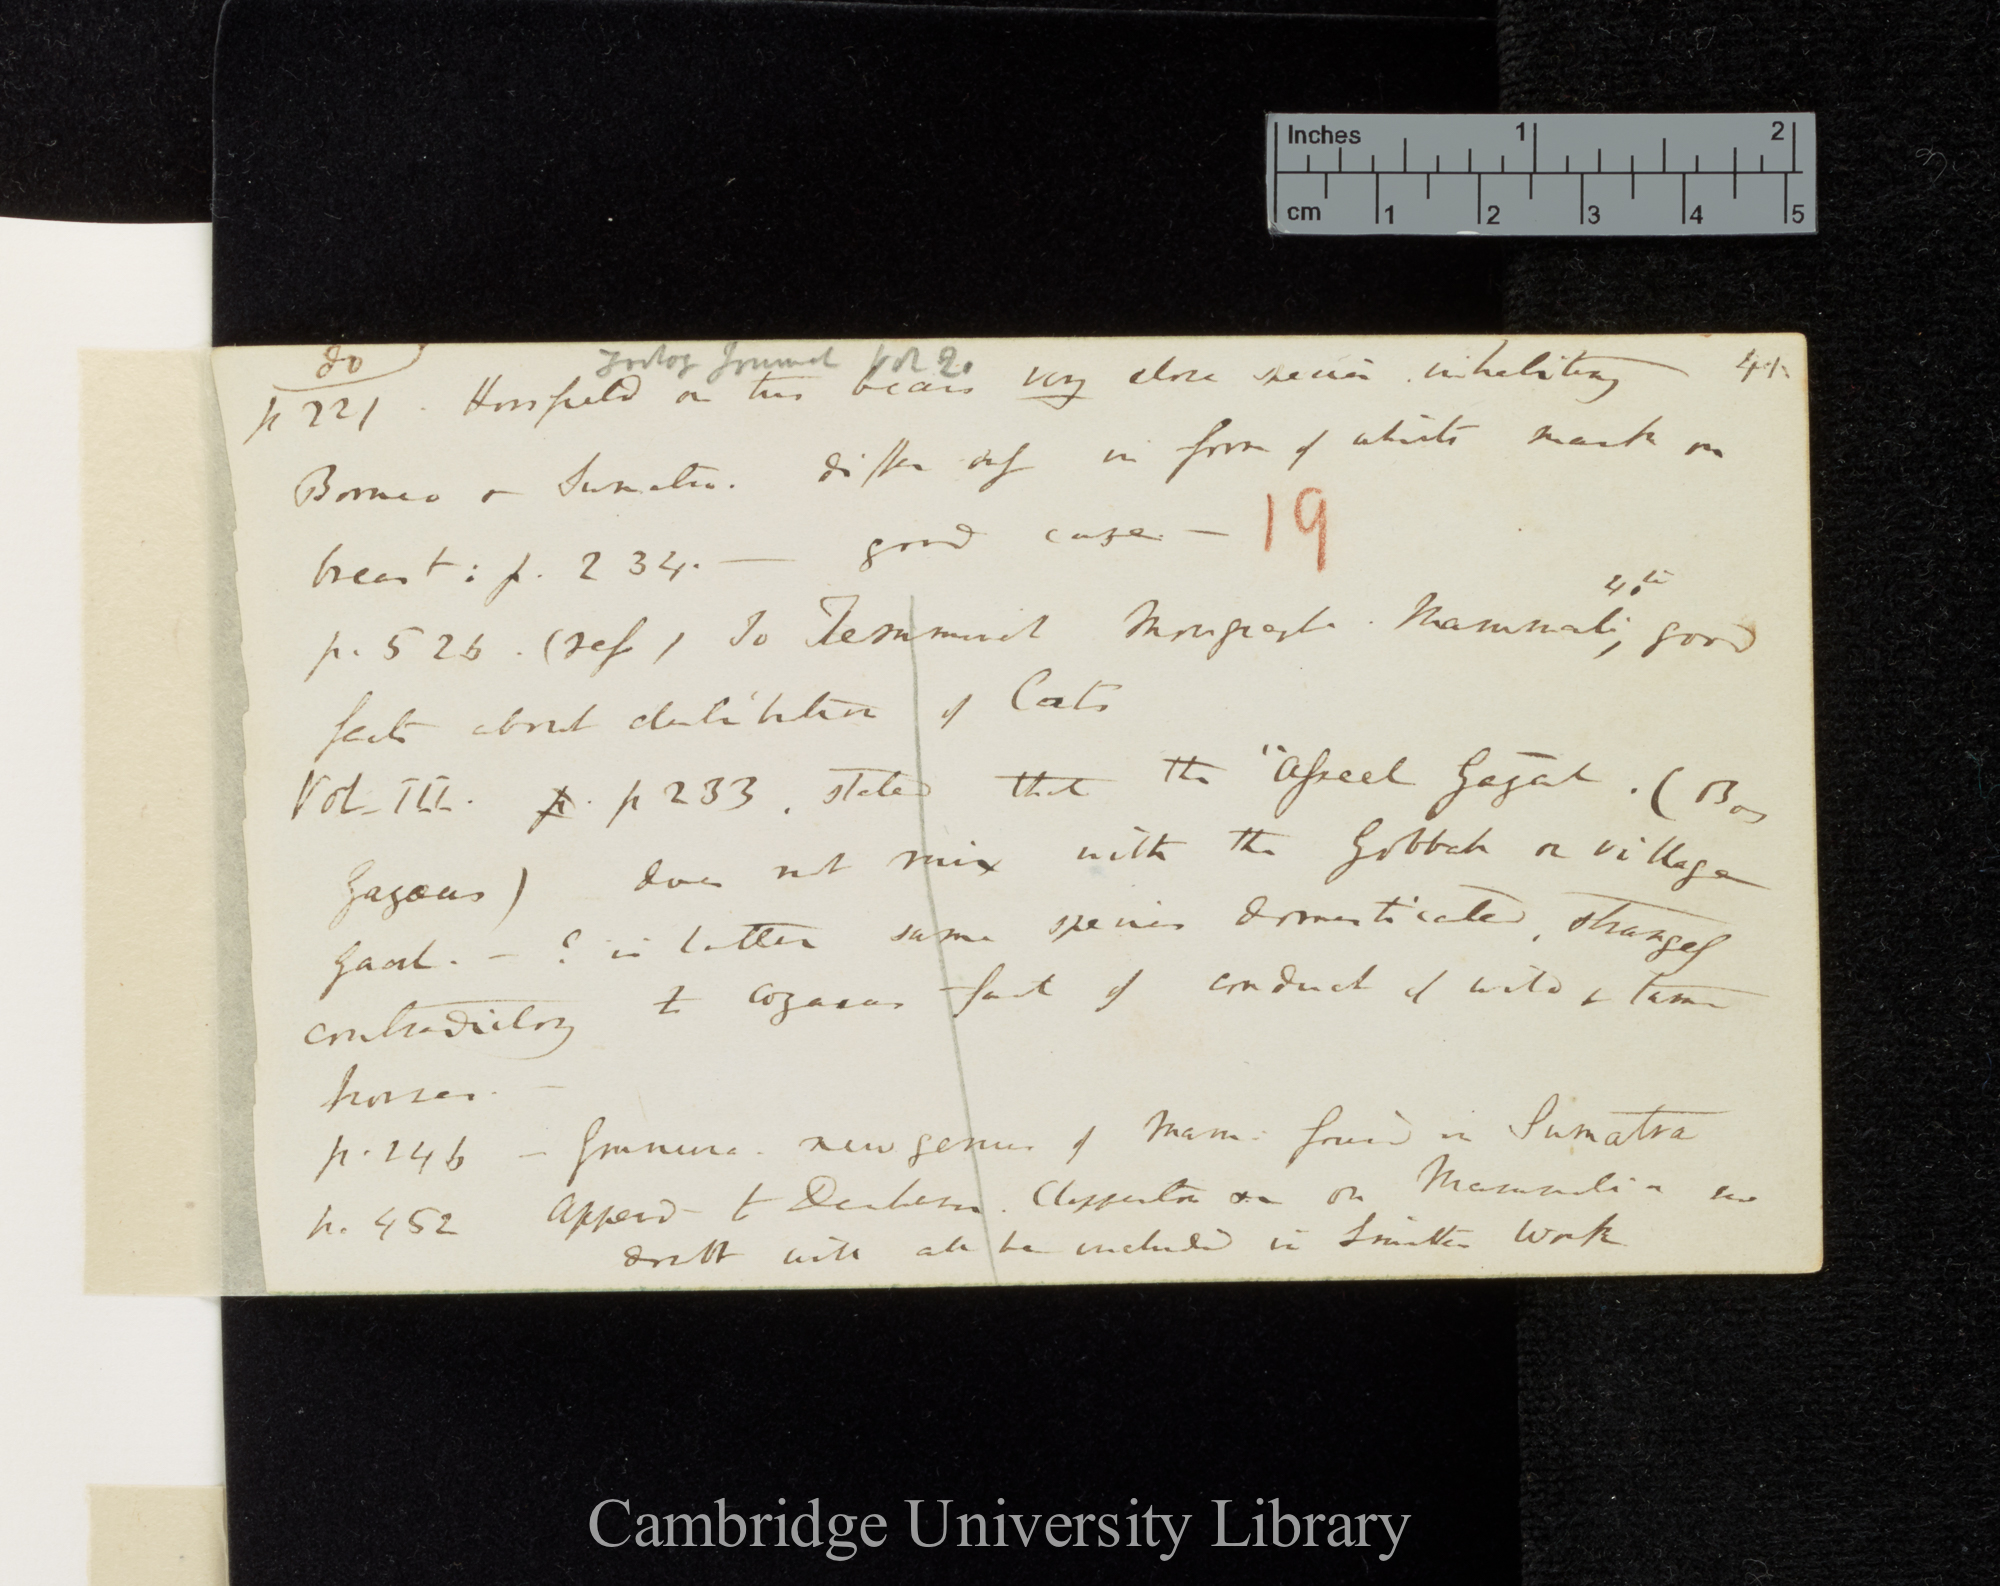 Inches 1 2
cm 1 2 3 4 5
do
Zoolog Journal Vol 2.
41.
p 221. Horsfield on two bears very close species inhabiting
Borneo & Sumatra. differ only in form of white mark on
breast: p. 234. — good case. —
19
p. 526. (ref) to Temminck Monograph. Mammali, good
4to
facts about distribution of Cats
Vol. III. p. p 233. stated that the "Asseel Gayal. (Bos
Gayaeus) does not mix with the Gobbah or village
Gaoal. — ? is latter same species domesticated, strangely
contradictory to Azara's fact of conduct of wild & tame
horses. —
p. 246 — Gymnura. new genus of Mam: found in Sumatra
p. 452 Append to Denham. Clapperton on Mammalia no
doubt will all be included in Smiths Work
Cambridge University Library